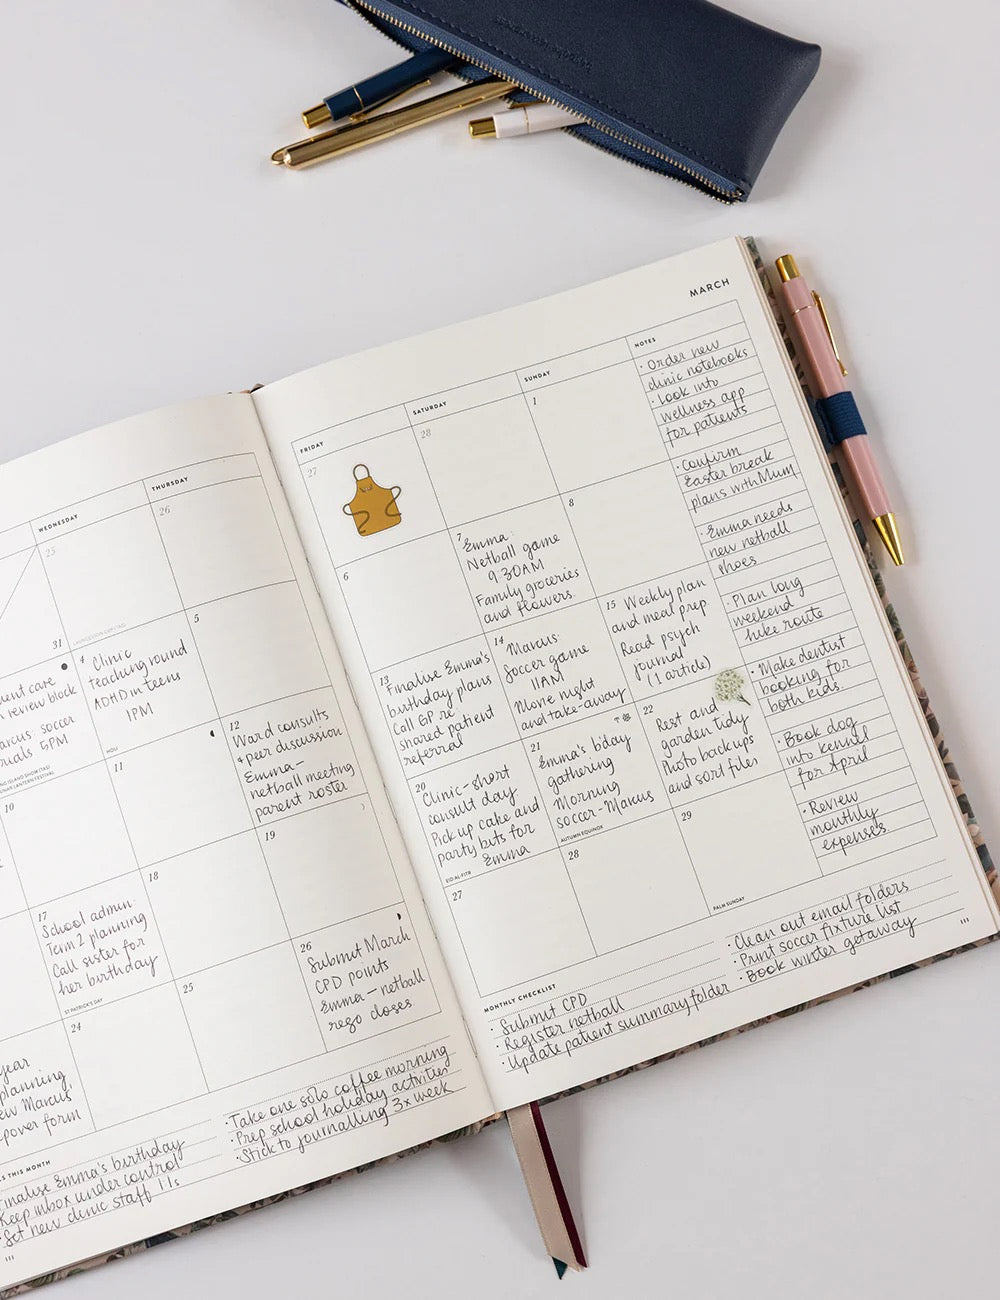 WEDNESDAY
THURSDAY
25
26
31
4
Clinic
teaching round
ADHD in teens
1PM
5
care
review block
soccer
5PM
HOLI
10
11
12
Ward consults
+ peer discussion
Emma-
netball meeting
parent roster
17
School admin:
Term 2 planning
Call sister for
her birthday
ST PATRICK'S DAY
18
19
24
25
26
Submit March
CPD points
Emma - netball
rego closes
year
planning
Marcus'
form
THIS MONTH
Finalise Emma's birthday
Keep inbox under control
Set new clinic staff 1:1s
· Take one solo coffee morning
· Prep school holiday activities
· Stick to journalling 3x week
MARCH
FRIDAY
SATURDAY
SUNDAY
NOTES
27
28
1
6
7
Emma:
Netball game
9:30AM
Family groceries
and flowers.
8
13
Finalise Emma's
birthday plans
Call GP re
shared patient
referral
14
Marcus:
Soccer game
11AM
Movie night
and take-away
15
Weekly plan
and meal prep
Read psych
journal
(1 article)
20
Clinic - short
consult day
Pick up cake and
party bits for
Emma
EID AL-FITR
21
Emma's b'day
gathering
Morning
soccer - Marcus
AUTUMN EQUINOX
22
Rest and
garden tidy
Photo backups
and sort files
27
28
29
PALM SUNDAY
· Order new
clinic notebooks
· Look into
wellness app
for patients
· Confirm
Easter break
plans with Mum
· Emma needs
new netball
shoes
· Plan long
weekend
hike route
· Make dentist
booking for
both kids.
· Book dog
into kennel
for April
· Review
monthly
expenses
MONTHLY CHECKLIST
· Submit CPD
· Register netball
· Update patient summary folder
· Clean out email folders
· Print soccer fixture list
· Book winter getaway